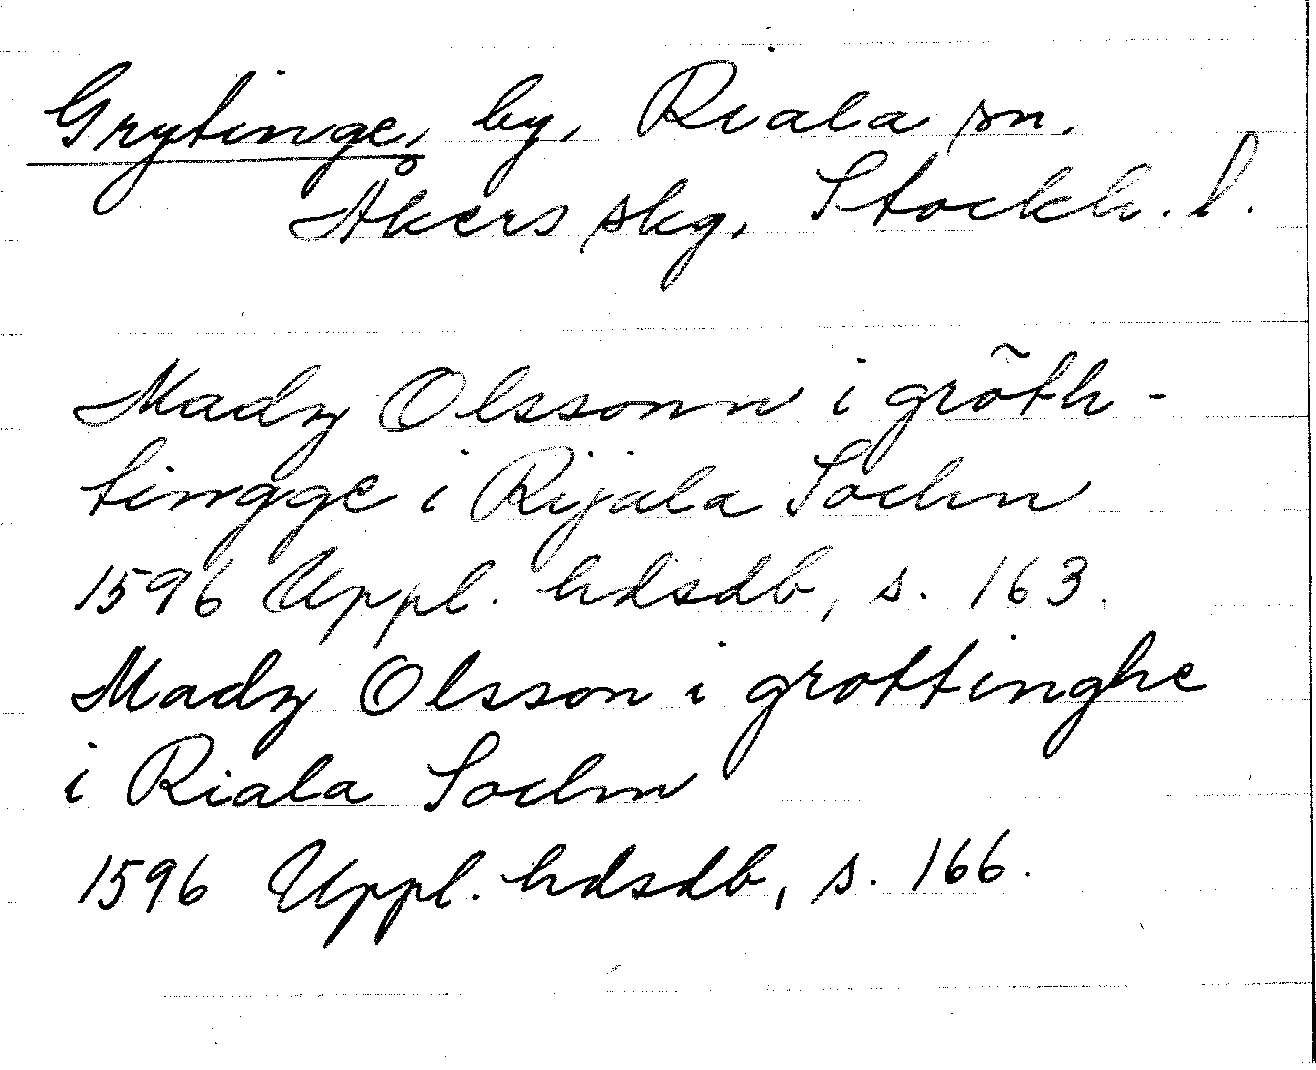 Grytinge, by, Riala sn.
Åkers skg, Stockh. l.
Madz Olssonn i grõth-
tingge i Rijala Sochn
1596 Uppl. hdsdb, s. 163.
Madz Olsson i grottinghe
i Riala Sochn
1596 Uppl. hdsdb, s. 166.